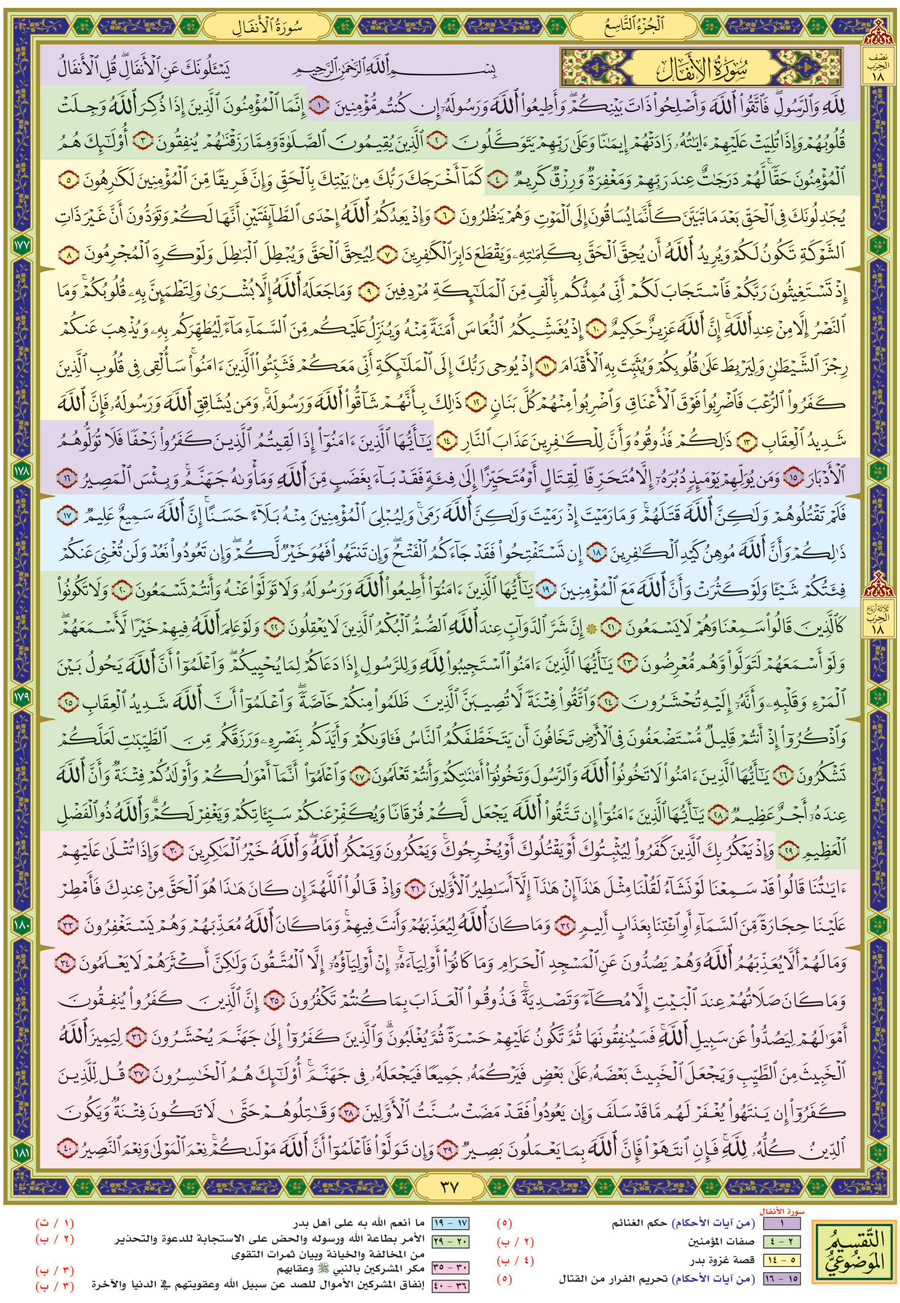 سُورَةُ الْأَنفَالِ
الْجُزْءُ التَّاسِعُ
نصف الحزب ١٨
سُورَةُ الْأَنفَالِ
بِسْمِ ٱللَّهِ ٱلرَّحْمَٰنِ ٱلرَّحِيمِ يَسْـَٔلُونَكَ عَنِ ٱلْأَنفَالِۖ قُلِ ٱلْأَنفَالُ
لِلَّهِ وَٱلرَّسُولِۖ فَٱتَّقُوا۟ ٱللَّهَ وَأَصْلِحُوا۟ ذَاتَ بَيْنِكُمْۖ وَأَطِيعُوا۟ ٱللَّهَ وَرَسُولَهُۥٓ إِن كُنتُم مُّؤْمِنِينَ ١ إِنَّمَا ٱلْمُؤْمِنُونَ ٱلَّذِينَ إِذَا ذُكِرَ ٱللَّهُ وَجِلَتْ
قُلُوبُهُمْ وَإِذَا تُلِيَتْ عَلَيْهِمْ ءَايَٰتُهُۥ زَادَتْهُمْ إِيمَٰنًا وَعَلَىٰ رَبِّهِمْ يَتَوَكَّلُونَ ٢ ٱلَّذِينَ يُقِيمُونَ ٱلصَّلَوٰةَ وَمِمَّا رَزَقْنَٰهُمْ يُنفِقُونَ ٣ أُو۟لَٰٓئِكَ هُمُ
ٱلْمُؤْمِنُونَ حَقًّاۚ لَّهُمْ دَرَجَٰتٌ عِندَ رَبِّهِمْ وَمَغْفِرَةٌ وَرِزْقٌ كَرِيمٌ ٤ كَمَآ أَخْرَجَكَ رَبُّكَ مِنۢ بَيْتِكَ بِٱلْحَقِّ وَإِنَّ فَرِيقًا مِّنَ ٱلْمُؤْمِنِينَ لَكَٰرِهُونَ ٥
يُجَٰدِلُونَكَ فِى ٱلْحَقِّ بَعْدَ مَا تَبَيَّنَ كَأَنَّمَا يُسَاقُونَ إِلَى ٱلْمَوْتِ وَهُمْ يَنظُرُونَ ٦ وَإِذْ يَعِدُكُمُ ٱللَّهُ إِحْدَى ٱلطَّآئِفَتَيْنِ أَنَّهَا لَكُمْ وَتَوَدُّونَ أَنَّ غَيْرَ ذَاتِ
ٱلشَّوْكَةِ تَكُونُ لَكُمْ وَيُرِيدُ ٱللَّهُ أَن يُحِقَّ ٱلْحَقَّ بِكَلِمَٰتِهِۦ وَيَقْطَعَ دَابِرَ ٱلْكَٰفِرِينَ ٧ لِيُحِقَّ ٱلْحَقَّ وَيُبْطِلَ ٱلْبَٰطِلَ وَلَوْ كَرِهَ ٱلْمُجْرِمُونَ ٨
إِذْ تَسْتَغِيثُونَ رَبَّكُمْ فَٱسْتَجَابَ لَكُمْ أَنِّى مُمِدُّكُم بِأَلْفٍ مِّنَ ٱلْمَلَٰٓئِكَةِ مُرْدِفِينَ ٩ وَمَا جَعَلَهُ ٱللَّهُ إِلَّا بُشْرَىٰ وَلِتَطْمَئِنَّ بِهِۦ قُلُوبُكُمْۚ وَمَا
ٱلنَّصْرُ إِلَّا مِنْ عِندِ ٱللَّهِۚ إِنَّ ٱللَّهَ عَزِيزٌ حَكِيمٌ ١٠ إِذْ يُغَشِّيكُمُ ٱلنُّعَاسَ أَمَنَةً مِّنْهُ وَيُنَزِّلُ عَلَيْكُم مِّنَ ٱلسَّمَآءِ مَآءً لِّيُطَهِّرَكُم بِهِۦ وَيُذْهِبَ عَنكُمْ
رِجْزَ ٱلشَّيْطَٰنِ وَلِيَرْبِطَ عَلَىٰ قُلُوبِكُمْ وَيُثَبِّتَ بِهِ ٱلْأَقْدَامَ ١١ إِذْ يُوحِى رَبُّكَ إِلَى ٱلْمَلَٰٓئِكَةِ أَنِّى مَعَكُمْ فَثَبِّتُوا۟ ٱلَّذِينَ ءَامَنُوا۟ۚ سَأُلْقِى فِى قُلُوبِ ٱلَّذِينَ
كَفَرُوا۟ ٱلرُّعْبَ فَٱضْرِبُوا۟ فَوْقَ ٱلْأَعْنَاقِ وَٱضْرِبُوا۟ مِنْهُمْ كُلَّ بَنَانٍ ١٢ ذَٰلِكَ بِأَنَّهُمْ شَآقُّوا۟ ٱللَّهَ وَرَسُولَهُۥۚ وَمَن يُشَاقِقِ ٱللَّهَ وَرَسُولَهُۥ فَإِنَّ ٱللَّهَ
شَدِيدُ ٱلْعِقَابِ ١٣ ذَٰلِكُمْ فَذُوقُوهُ وَأَنَّ لِلْكَٰفِرِينَ عَذَابَ ٱلنَّارِ ١٤ يَٰٓأَيُّهَا ٱلَّذِينَ ءَامَنُوٓا۟ إِذَا لَقِيتُمُ ٱلَّذِينَ كَفَرُوا۟ زَحْفًا فَلَا تُوَلُّوهُمُ
ٱلْأَدْبَارَ ١٥ وَمَن يُوَلِّهِمْ يَوْمَئِذٍ دُبُرَهُۥٓ إِلَّا مُتَحَرِّفًا لِّقِتَالٍ أَوْ مُتَحَيِّزًا إِلَىٰ فِئَةٍ فَقَدْ بَآءَ بِغَضَبٍ مِّنَ ٱللَّهِ وَمَأْوَىٰهُ جَهَنَّمُۖ وَبِئْسَ ٱلْمَصِيرُ ١٦
فَلَمْ تَقْتُلُوهُمْ وَلَٰكِنَّ ٱللَّهَ قَتَلَهُمْۚ وَمَا رَمَيْتَ إِذْ رَمَيْتَ وَلَٰكِنَّ ٱللَّهَ رَمَىٰۚ وَلِيُبْلِىَ ٱلْمُؤْمِنِينَ مِنْهُ بَلَآءً حَسَنًاۚ إِنَّ ٱللَّهَ سَمِيعٌ عَلِيمٌ ١٧
ذَٰلِكُمْ وَأَنَّ ٱللَّهَ مُوهِنُ كَيْدِ ٱلْكَٰفِرِينَ ١٨ إِن تَسْتَفْتِحُوا۟ فَقَدْ جَآءَكُمُ ٱلْفَتْحُۖ وَإِن تَنتَهُوا۟ فَهُوَ خَيْرٌ لَّكُمْۖ وَإِن تَعُودُوا۟ نَعُدْ وَلَن تُغْنِىَ عَنكُمْ
فِئَتُكُمْ شَيْـًٔا وَلَوْ كَثُرَتْ وَأَنَّ ٱللَّهَ مَعَ ٱلْمُؤْمِنِينَ ١٩ يَٰٓأَيُّهَا ٱلَّذِينَ ءَامَنُوٓا۟ أَطِيعُوا۟ ٱللَّهَ وَرَسُولَهُۥ وَلَا تَوَلَّوْا۟ عَنْهُ وَأَنتُمْ تَسْمَعُونَ ٢٠ وَلَا تَكُونُوا۟
كَٱلَّذِينَ قَالُوا۟ سَمِعْنَا وَهُمْ لَا يَسْمَعُونَ ٢١ ۞ إِنَّ شَرَّ ٱلدَّوَآبِّ عِندَ ٱللَّهِ ٱلصُّمُّ ٱلْبُكْمُ ٱلَّذِينَ لَا يَعْقِلُونَ ٢٢ وَلَوْ عَلِمَ ٱللَّهُ فِيهِمْ خَيْرًا لَّأَسْمَعَهُمْۖ
وَلَوْ أَسْمَعَهُمْ لَتَوَلَّوا۟ وَّهُم مُّعْرِضُونَ ٢٣ يَٰٓأَيُّهَا ٱلَّذِينَ ءَامَنُوا۟ ٱسْتَجِيبُوا۟ لِلَّهِ وَلِلرَّسُولِ إِذَا دَعَاكُمْ لِمَا يُحْيِيكُمْۖ وَٱعْلَمُوٓا۟ أَنَّ ٱللَّهَ يَحُولُ بَيْنَ
ٱلْمَرْءِ وَقَلْبِهِۦ وَأَنَّهُۥٓ إِلَيْهِ تُحْشَرُونَ ٢٤ وَٱتَّقُوا۟ فِتْنَةً لَّا تُصِيبَنَّ ٱلَّذِينَ ظَلَمُوا۟ مِنكُمْ خَآصَّةًۖ وَٱعْلَمُوٓا۟ أَنَّ ٱللَّهَ شَدِيدُ ٱلْعِقَابِ ٢٥
وَٱذْكُرُوٓا۟ إِذْ أَنتُمْ قَلِيلٌ مُّسْتَضْعَفُونَ فِى ٱلْأَرْضِ تَخَافُونَ أَن يَتَخَطَّفَكُمُ ٱلنَّاسُ فَـَٔاوَىٰكُمْ وَأَيَّدَكُم بِنَصْرِهِۦ وَرَزَقَكُم مِّنَ ٱلطَّيِّبَٰتِ لَعَلَّكُمْ
تَشْكُرُونَ ٢٦ يَٰٓأَيُّهَا ٱلَّذِينَ ءَامَنُوا۟ لَا تَخُونُوا۟ ٱللَّهَ وَٱلرَّسُولَ وَتَخُونُوٓا۟ أَمَٰنَٰتِكُمْ وَأَنتُمْ تَعْلَمُونَ ٢٧ وَٱعْلَمُوٓا۟ أَنَّمَآ أَمْوَٰلُكُمْ وَأَوْلَٰدُكُمْ فِتْنَةٌ وَأَنَّ ٱللَّهَ
عِندَهُۥٓ أَجْرٌ عَظِيمٌ ٢٨ يَٰٓأَيُّهَا ٱلَّذِينَ ءَامَنُوٓا۟ إِن تَتَّقُوا۟ ٱللَّهَ يَجْعَل لَّكُمْ فُرْقَانًا وَيُكَفِّرْ عَنكُمْ سَيِّـَٔاتِكُمْ وَيَغْفِرْ لَكُمْۗ وَٱللَّهُ ذُو ٱلْفَضْلِ
ٱلْعَظِيمِ ٢٩ وَإِذْ يَمْكُرُ بِكَ ٱلَّذِينَ كَفَرُوا۟ لِيُثْبِتُوكَ أَوْ يَقْتُلُوكَ أَوْ يُخْرِجُوكَۚ وَيَمْكُرُونَ وَيَمْكُرُ ٱللَّهُۖ وَٱللَّهُ خَيْرُ ٱلْمَٰكِرِينَ ٣٠ وَإِذَا تُتْلَىٰ عَلَيْهِمْ
ءَايَٰتُنَا قَالُوا۟ قَدْ سَمِعْنَا لَوْ نَشَآءُ لَقُلْنَا مِثْلَ هَٰذَآۙ إِنْ هَٰذَآ إِلَّآ أَسَٰطِيرُ ٱلْأَوَّلِينَ ٣١ وَإِذْ قَالُوا۟ ٱللَّهُمَّ إِن كَانَ هَٰذَا هُوَ ٱلْحَقَّ مِنْ عِندِكَ فَأَمْطِرْ
عَلَيْنَا حِجَارَةً مِّنَ ٱلسَّمَآءِ أَوِ ٱئْتِنَا بِعَذَابٍ أَلِيمٍ ٣٢ وَمَا كَانَ ٱللَّهُ لِيُعَذِّبَهُمْ وَأَنتَ فِيهِمْۚ وَمَا كَانَ ٱللَّهُ مُعَذِّبَهُمْ وَهُمْ يَسْتَغْفِرُونَ ٣٣
وَمَا لَهُمْ أَلَّا يُعَذِّبَهُمُ ٱللَّهُ وَهُمْ يَصُدُّونَ عَنِ ٱلْمَسْجِدِ ٱلْحَرَامِ وَمَا كَانُوٓا۟ أَوْلِيَآءَهُۥٓۚ إِنْ أَوْلِيَآؤُهُۥٓ إِلَّا ٱلْمُتَّقُونَ وَلَٰكِنَّ أَكْثَرَهُمْ لَا يَعْلَمُونَ ٣٤
وَمَا كَانَ صَلَاتُهُمْ عِندَ ٱلْبَيْتِ إِلَّا مُكَآءً وَتَصْدِيَةًۚ فَذُوقُوا۟ ٱلْعَذَابَ بِمَا كُنتُمْ تَكْفُرُونَ ٣٥ إِنَّ ٱلَّذِينَ كَفَرُوا۟ يُنفِقُونَ
أَمْوَٰلَهُمْ لِيَصُدُّوا۟ عَن سَبِيلِ ٱللَّهِۚ فَسَيُنفِقُونَهَا ثُمَّ تَكُونُ عَلَيْهِمْ حَسْرَةً ثُمَّ يُغْلَبُونَۗ وَٱلَّذِينَ كَفَرُوٓا۟ إِلَىٰ جَهَنَّمَ يُحْشَرُونَ ٣٦ لِيَمِيزَ ٱللَّهُ
ٱلْخَبِيثَ مِنَ ٱلطَّيِّبِ وَيَجْعَلَ ٱلْخَبِيثَ بَعْضَهُۥ عَلَىٰ بَعْضٍ فَيَرْكُمَهُۥ جَمِيعًا فَيَجْعَلَهُۥ فِى جَهَنَّمَۚ أُو۟لَٰٓئِكَ هُمُ ٱلْخَٰسِرُونَ ٣٧ قُل لِّلَّذِينَ
كَفَرُوٓا۟ إِن يَنتَهُوا۟ يُغْفَرْ لَهُم مَّا قَدْ سَلَفَ وَإِن يَعُودُوا۟ فَقَدْ مَضَتْ سُنَّتُ ٱلْأَوَّلِينَ ٣٨ وَقَٰتِلُوهُمْ حَتَّىٰ لَا تَكُونَ فِتْنَةٌ وَيَكُونَ
ٱلدِّينُ كُلُّهُۥ لِلَّهِۚ فَإِنِ ٱنتَهَوْا۟ فَإِنَّ ٱللَّهَ بِمَا يَعْمَلُونَ بَصِيرٌ ٣٩ وَإِن تَوَلَّوْا۟ فَٱعْلَمُوٓا۟ أَنَّ ٱللَّهَ مَوْلَىٰكُمْۚ نِعْمَ ٱلْمَوْلَىٰ وَنِعْمَ ٱلنَّصِيرُ ٤٠
١٧٧
١٧٨
ثلاثة أرباع الحزب ١٨
١٧٩
١٨٠
١٨١
٣٧
التقسيم الموضوعي
سورة الأنفال
١ (من آيات الأحكام) حكم الغنائم (٥)
٢ - ٤ صفات المؤمنين (٢ / ب)
٥ - ١٤ قصة غزوة بدر (٤ / ب)
١٥ - ١٦ (من آيات الأحكام) تحريم الفرار من القتال (٥)
١٧ - ١٩ ما أنعم الله به على أهل بدر (١ / ت)
٢٠ - ٢٩ الأمر بطاعة الله ورسوله والحض على الاستجابة للدعوة والتحذير (٢ / ب)
من المخالفة والخيانة وبيان ثمرات التقوى
٣٠ - ٣٥ مكر المشركين بالنبي ﷺ وعقابهم (٣ / ب)
٣٦ - ٤٠ إنفاق المشركين الأموال للصد عن سبيل الله وعقوبتهم في الدنيا والآخرة (٣ / ب)